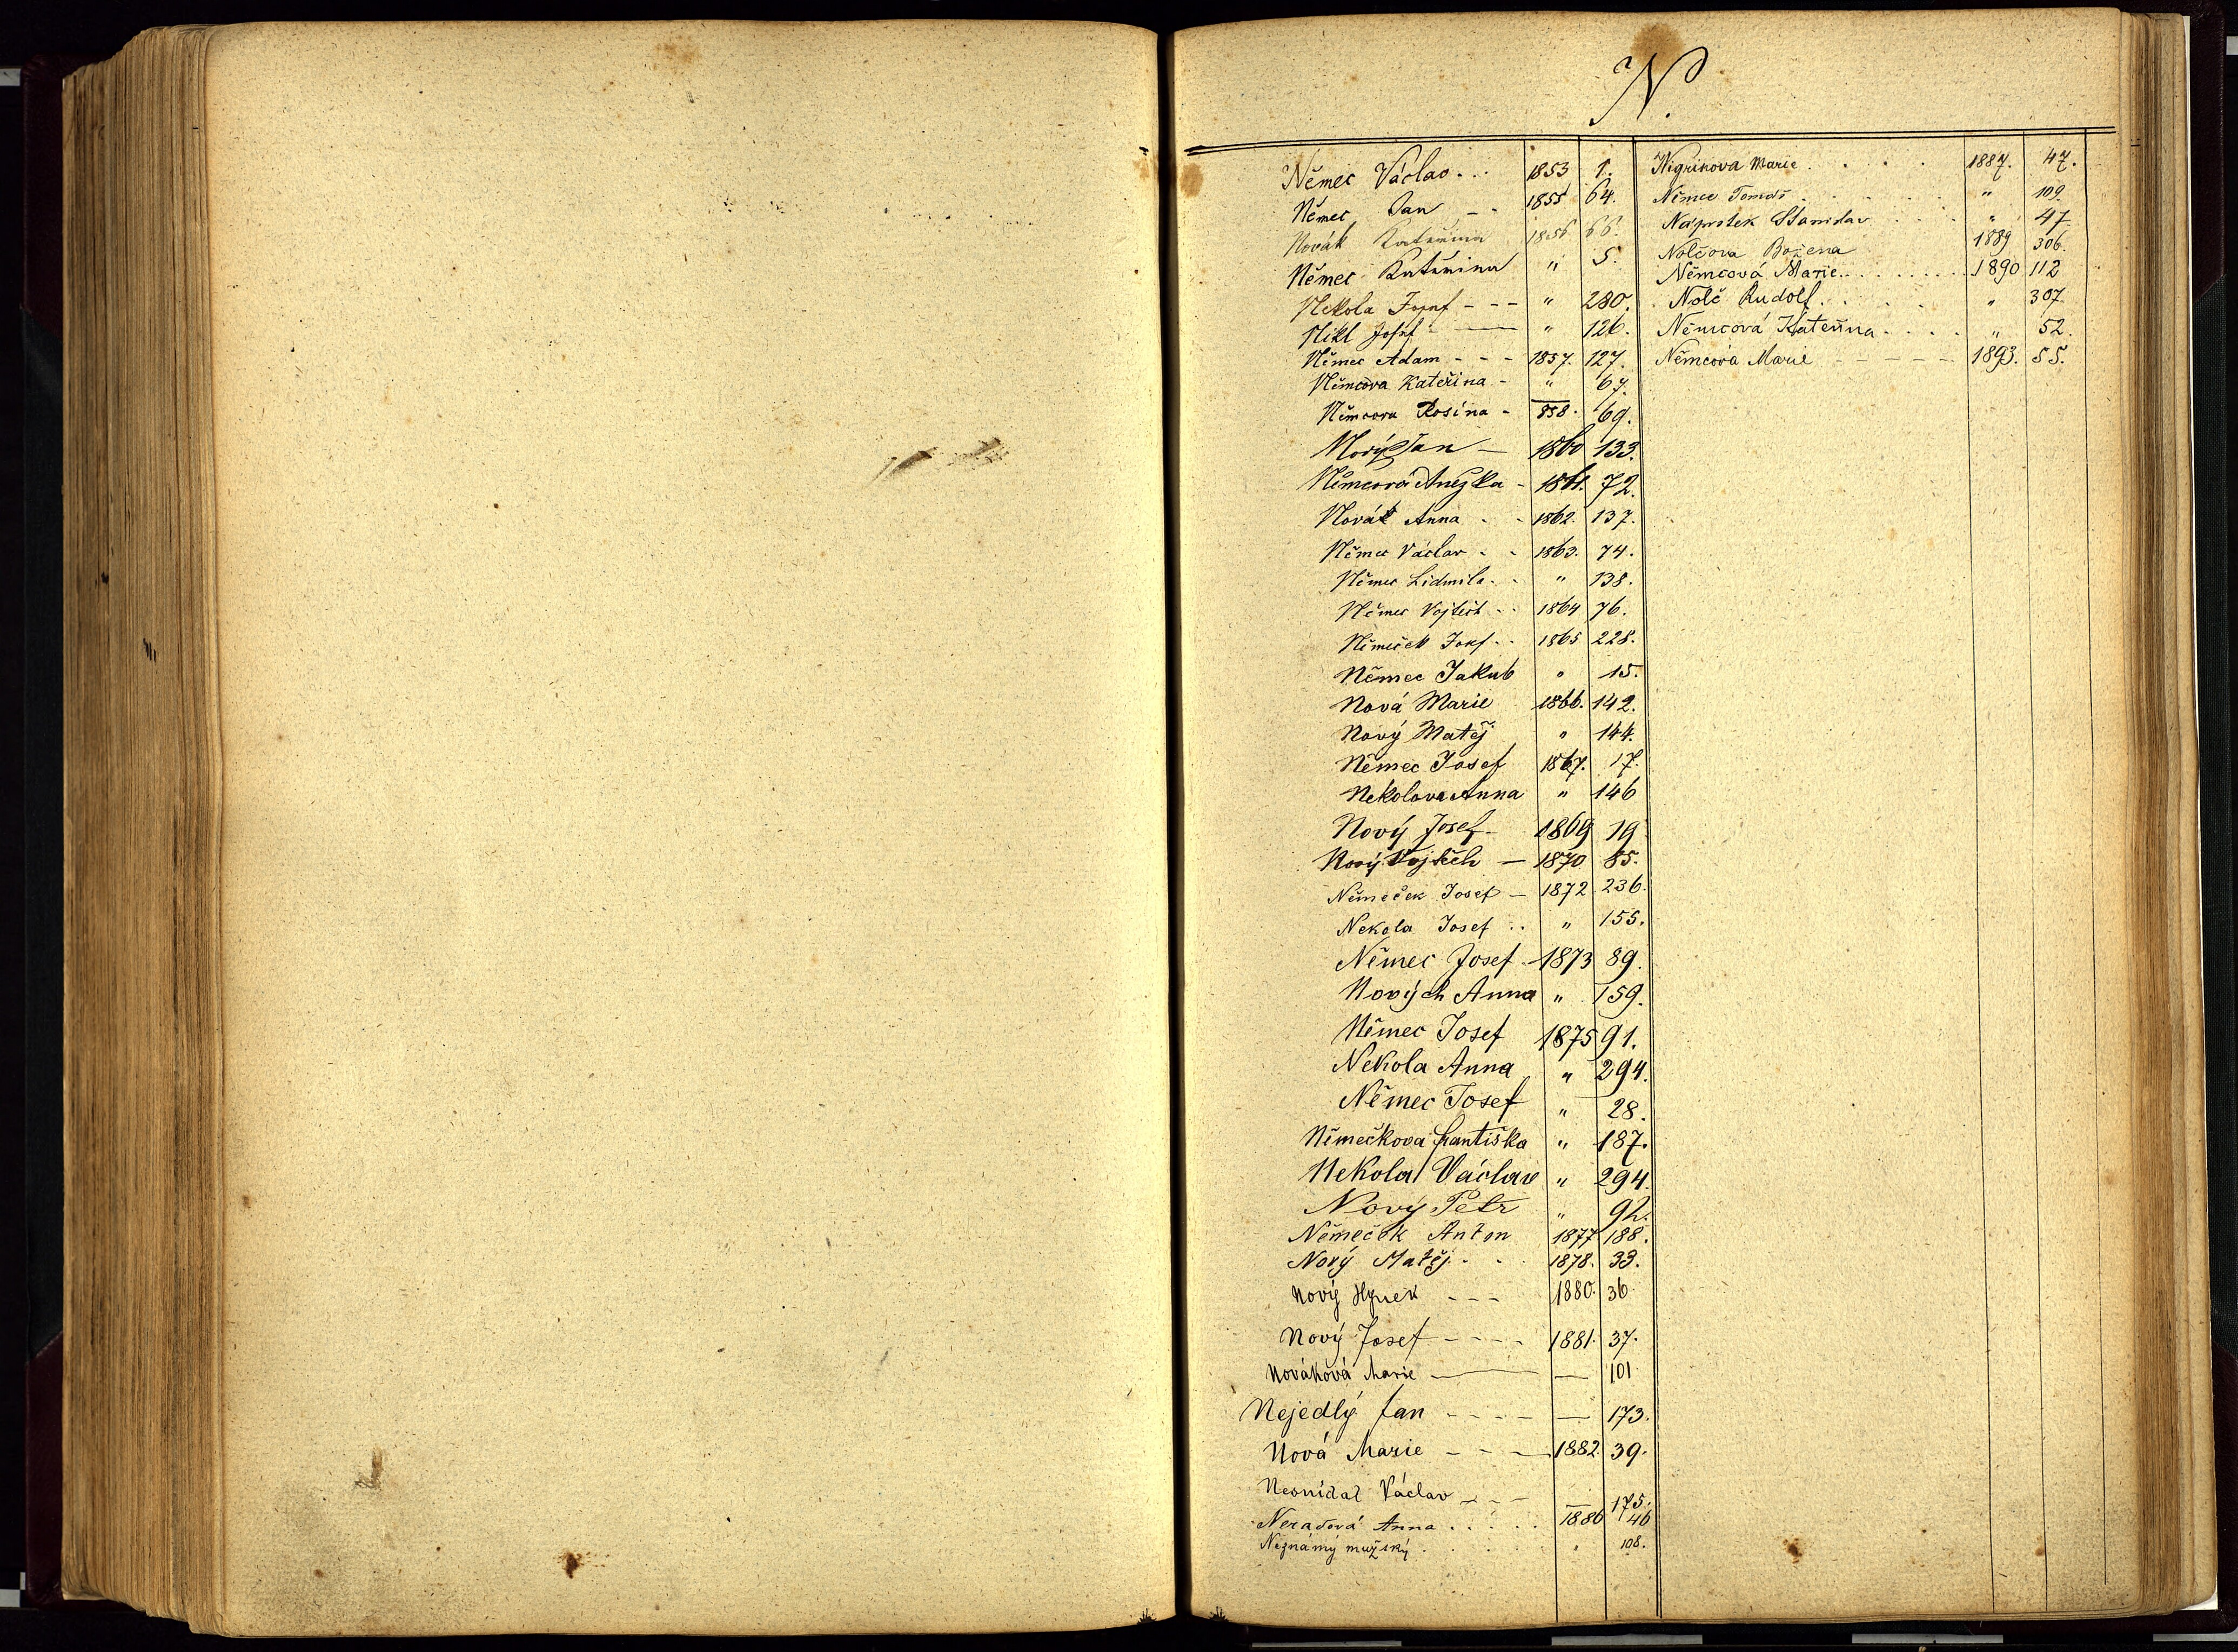 N.
Němec Václav . . . 1853 1.
Němec Jan - - 1855 64.
Novák Kateřina 1856 66.
Němec Kateřina " 5.
Nekola Josef - - - " 280.
Nikl Josef - — " 126.
Němec Adam - - - 1857. 127.
Němcova Kateřina - " 67.
Němcova Rosina - 858. 69.
Nový Jan — 1860 133.
Němcová Anežka - 1861. 72.
Novák Anna - - 1862. 137.
Němec Václav - - 1863. 74.
Němec Lidmila - - " 138.
Němec Vojtěch - - 1864 76.
Němeček Josef - - 1865 228.
Němec Jakub " 15.
Nová Marie 1866. 142.
Nový Matěj " 144.
Němec Josef 1867. 17.
Nekolova Anna " 146
Nový Josef - 1869 19
Nový Vojtěch — 1870 85.
Němeček Josef — 1872 236.
Nekola Josef . . " 155.
Němec Josef - 1873 89.
Nových Anna " 159.
Němec Josef 1875 91.
Nekola Anna " 294.
Němec Josef " 28.
Němečkova Frantiska " 187.
Nekola Václav " 294.
Nový Petr " 92.
Němeček Anton 1877 188.
Nový Matěj - . . 1878. 33.
Nový Hynek - - - 1880. 36.
Nový Josef - - - - 1881. 37.
Nováková Marie — — 101
Nejedlý Jan - - - - — 173.
Nová Marie - - — 1882. 39.
Václav - - - — 175.
Anna . . . . . 1886 46
Neznámý mužský . . . . . " 108.
Nigrinova Marie . . . . . 1887. 47.
Němec Tomáš . . . . . . " 109.
Náprstek Stanislav . . . " 47
Nolčova Božena 1889 306.
Němcová Marie . . . . . . . . 1890 112
Nolč Rudolf . . . . . " 307.
Němcová Kateřina . . . . " 52.
Němcova Marie - - - - - 1893. 55.